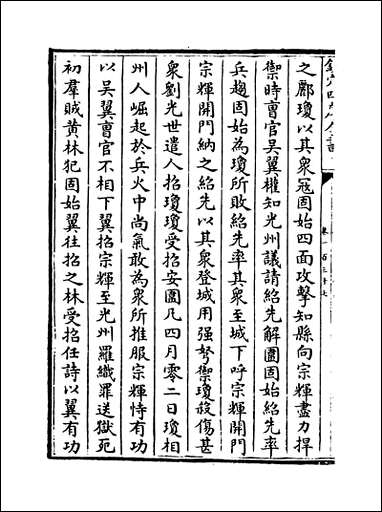 之酈瓊以其衆冠固始四面攻擊知縣向宗輝盡力捍
禦時曹官吳翼權知光州議請紹先解圍固始紹先率
兵趨固始為瓊所敗紹先率其衆至城下呼宗輝開門
宗輝開門納之紹先以其衆登城用强弩禦瓊殺傷甚
衆劉光世遣人招瓊瓊受招安圍凡四月零二日瓊相
州人崛起於兵火中尚氣敢為衆所推服宗輝恃有功
以吳翼曹官不相下翼招宗輝至光州羅織罪送獄死
初羣賊黄林犯固始翼往招之林受招任詩以翼有功